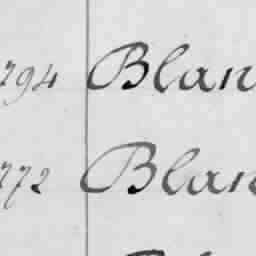 1794 Blan
1772 Blan